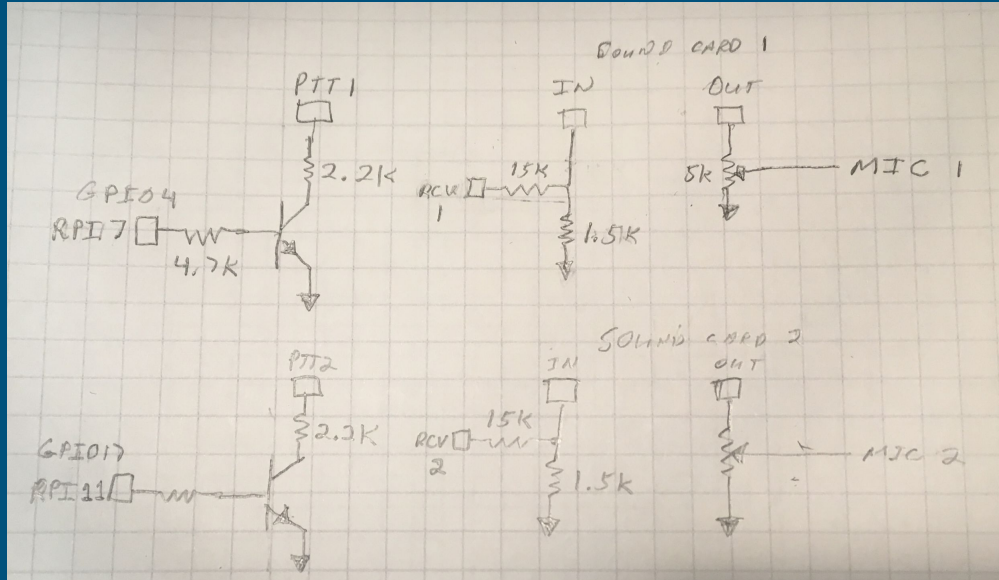 SOUND CARD 1
PTT1
IN
OUT
2.2K
15K
5K
MIC 1
RCV
1
GPIO4
RPI7
4.7K
1.5K
SOUND CARD 2
PTT2
IN
OUT
2.2K
15K
RCV
2
MIC 2
GPIO17
RPI11
1.5K